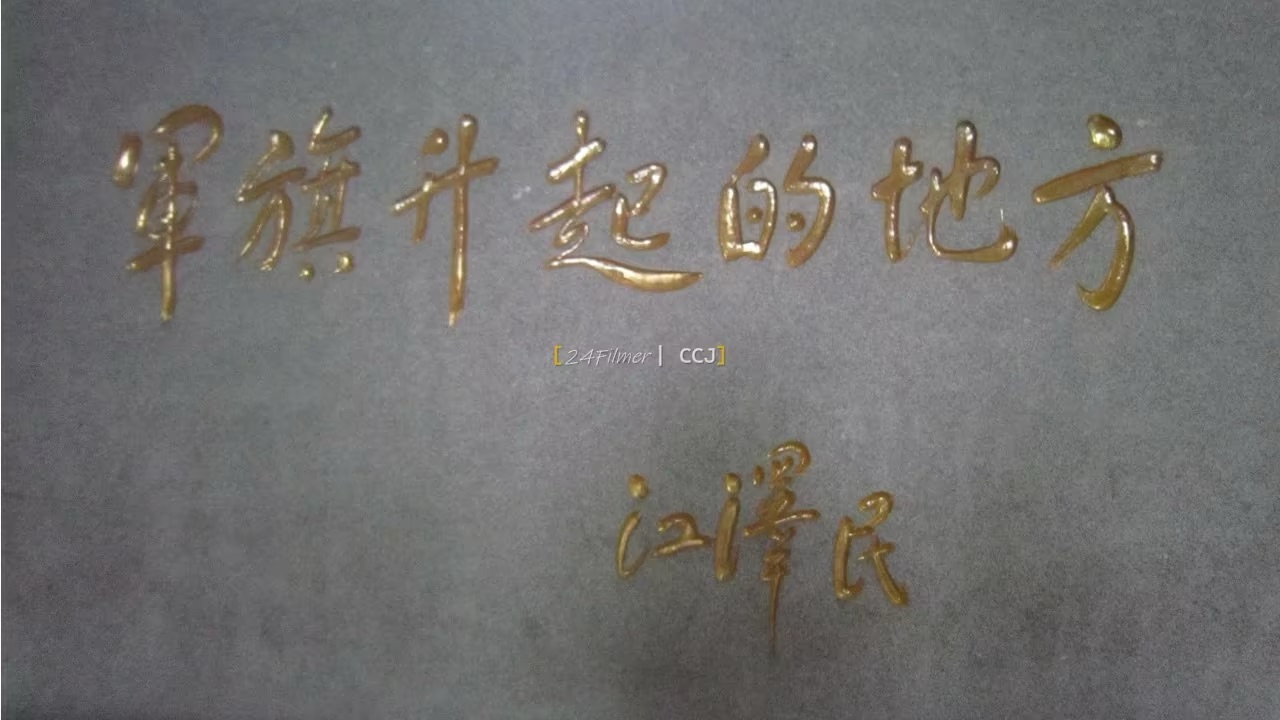 軍旗升起的地方
[24Filmer | CCJ]
江澤民